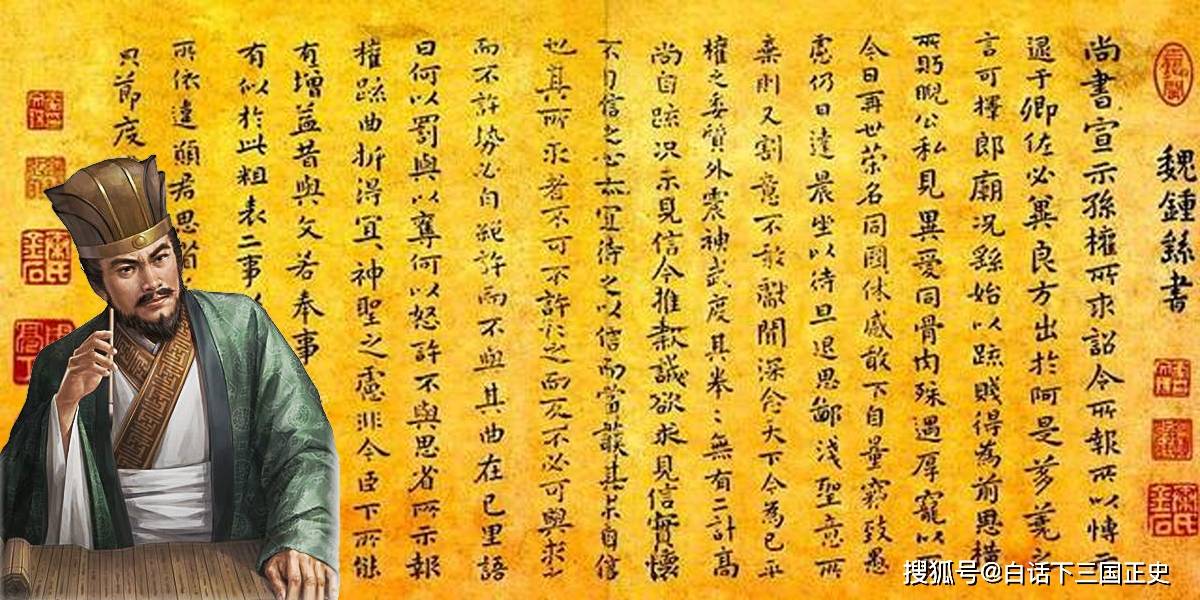 魏鍾繇書
尚書宣示孫權所求詔令所報所以博示
逮于卿佐必冀良方出於阿是芻蕘之
言可擇郎廟況繇始以疏賤得為前恩橫
所眄睨公私見異愛同骨肉殊遇厚寵以
今日再世榮名同國休慼敢不自量竊致愚
慮仍日達晨坐以待旦退思鄙淺聖意所
棄則又割意不敢獻聞深念天下今為已平
權之委質外震神武度其拳〻無有二計高
尚自疏況未見信今推款誠欲求見信實懷
不自信之心亦宜待之以信而當護其未自信
也其所求者不可不許許之而反不必可與求之
而不許勢必自絕許而不與其曲在已里語
曰何以罰與以奪何以怒許不與思省所示報
權疏曲折得宜〻神聖之慮非今臣下所能
有增益昔與文若奉事
有似於此粗表二事以
所依違願君思省
節度
搜狐号@白话下三国正史